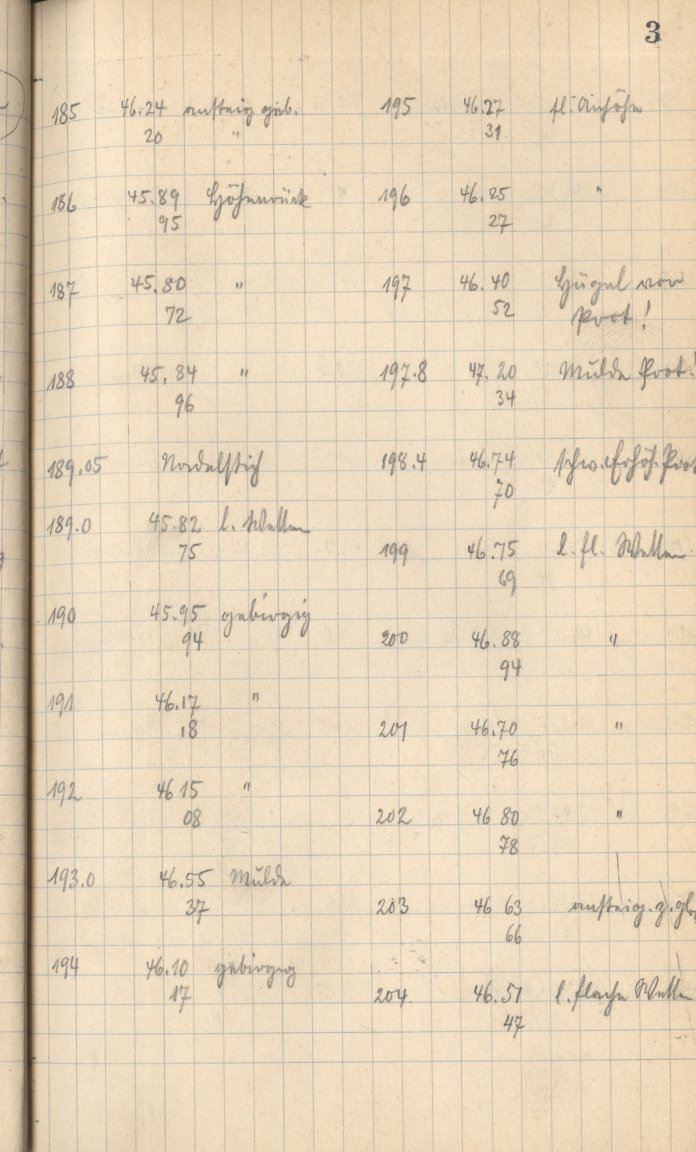 3
185 46.24 ansteig. geb.
20 "
186 45.89 Höhenrück
95
187 45.80 "
72
188 45.84 "
96
189.05 Nadelstich
189.0 45.82 l. Wellen
75
190 45.95 gebirgig
94
191 46.17 "
18
192 46 15 "
08
193.0 46.55 Mulde
37
194 46.10 gebirgig
17
195 46.27 fl. Anhöhe
31
196 46.25 "
27
197 46.40 Hügel vor
52 Prot!
197.8 47.20 Mulde Prot.!
34
198.4 46.74 schw. Erhöh. Prot
70
199 46.75 l. fl. Wellen
69
200 46.88 "
94
201 46.70 "
76
202 46 80 "
78
203 46 63 ansteig. z.
66
204. 46.51 l. flache Wellen
47